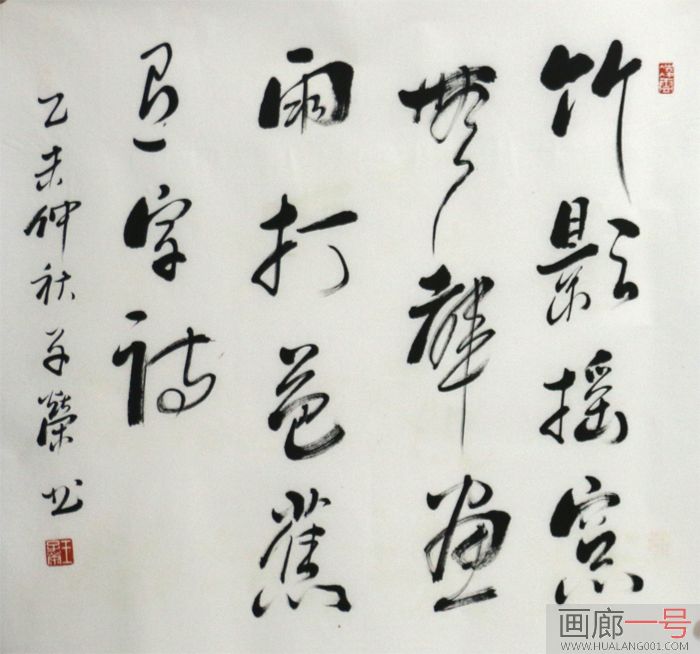 竹影摇窓
無聲畫
雨打芭蕉
字詩
乙未仲秋子榮书
画廊一号
WWW.HUALANG001.COM